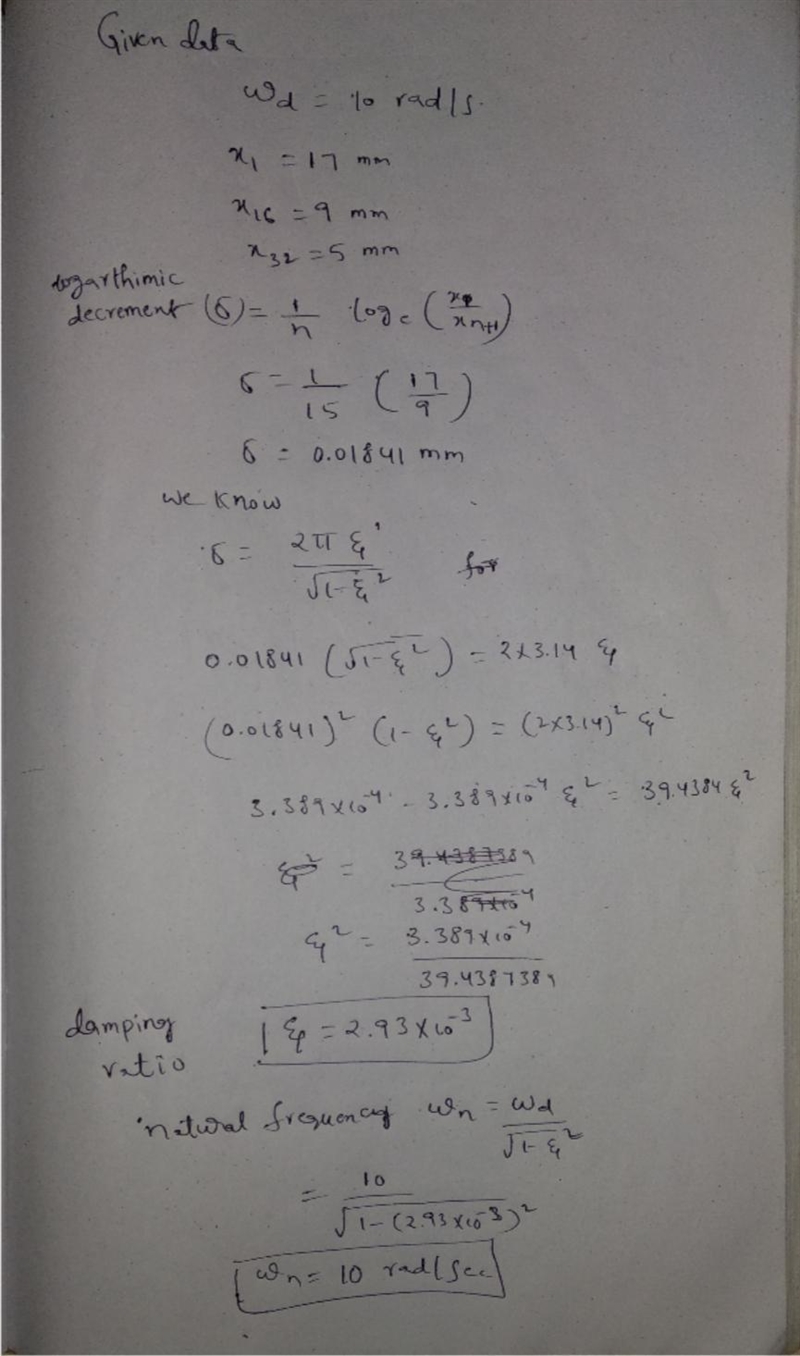 Given data
ωd = 10 rad/s.
x1 = 17 mm
x16 = 9 mm
x32 = 5 mm
logarthimic
decrement (δ) = 1/n loge (x1/xn+1)
δ = 1/15 (17/9)
δ = 0.01841 mm
we know
δ = 2π ξ / √1-ξ² for
0.01841 (√1-ξ²) = 2×3.14 ξ
(0.01841)² (1-ξ²) = (2×3.14)² ξ²
3.389×10⁻⁴ - 3.389×10⁻⁴ ξ² = 39.4384 ξ²
ξ² = 39.4387389 / 3.389×10⁻⁴
ξ² = 3.389×10⁻⁴ / 39.4387389
damping ratio ξ = 2.93×10⁻³
natural frequency ωn = ωd / √1-ξ²
= 10 / √1-(2.93×10⁻³)²
ωn = 10 rad/sec